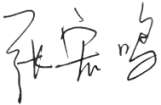 张宏鸣